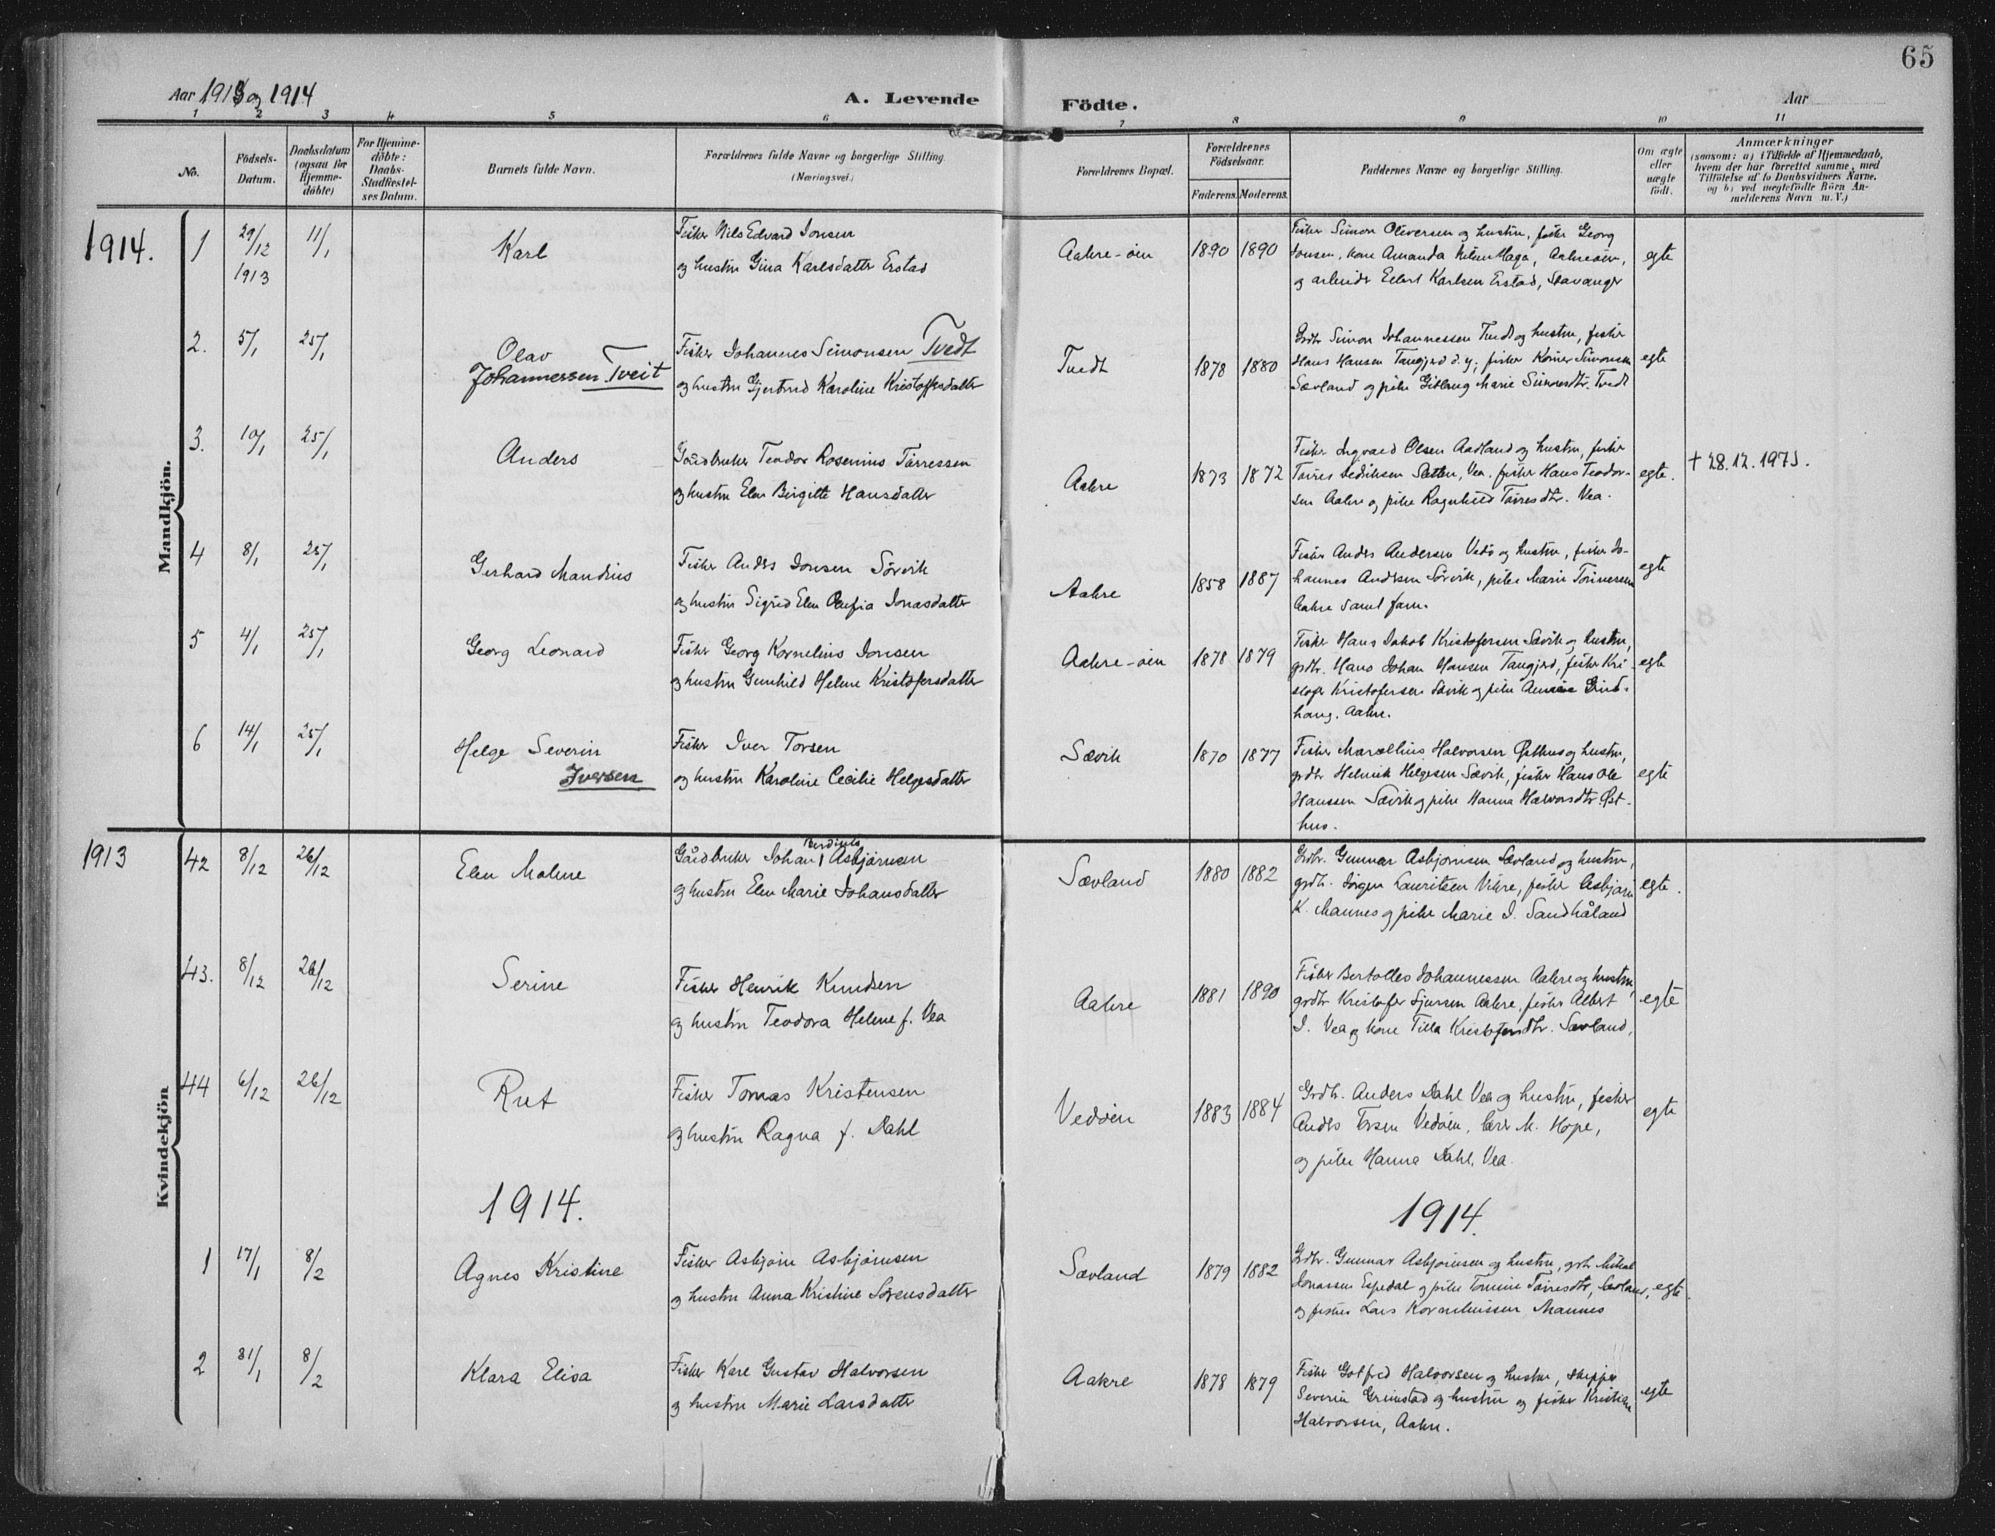 65
Aar 1913 og 1914
A. Levende Födte.
Aar
1 2 3 4 5 6 7 8 9 10 11
No.
Födsels-
Datum.
Daabsdatum
(ogsaa for
Hjemme-
döbte)
For Hjemme-
döbte:
Daabs-
Stadfæstel-
ses Datum.
Barnets fulde Navn.
Forældrenes fulde Navne og borgerlige Stilling.
(Næringsvei.)
Forældrenes Bopæl.
Forældrenes
Födselsaar.
Faderens. Moderens.
Faddernes Navne og borgerlige Stilling.
Om ægte
eller
uægte
födt.
Anmærkninger
(saasom: a) i Tilfælde af Hjemmedaab,
hvem der har forrettet samme, med
Tilföielse af to Daabsvidners Navne,
og b) ved uegtefödte Börn An-
melderens Navn m. V.)
Mandkjön.
1914.
1 29/12 1913 11/1 Karl
Fisker Nils Edvard Jonsen
og hustru Gina Karlsdatter Erstad
Aakre-öen 1890 1890
Fisker Simon Oliversen og hustru, fisker Georg
Jonsen, kone Amanda Haga, Aakreöen,
og arbeider Karlsen Erstad, Stavanger
egte
2. 5/1 25/1 Olav
Johannessen Tveit
Fisker Johannes Simonsen Tvedt
og hustru Gjertrud Karoline Kristoffersdatter
Tvedt 1878 1880
Grdbr Simon Johannessen Tvedt og hustru, fisker
Hans Hansen Tangjerd d.y; fisker Simonsen
Sævland og pike Marie Simonsdtr. Tvedt
egte
3. 10/1 25/1 Anders
Gårdbruker Teodor Rosenius Tørressen
og hustru Elen Birgitte Hansdatter
Aakre 1873 1872
Fisker Ingvald Olsen Aadland og hustru, fisker
Tørres Vea. fisker Hans Teodor-
sen Aakre og pike Ragnhild Tørresdtr. Vea.
egte.
† 28.12.1973.
4 8/1 25/1 Gerhard Mandius
Fisker Anders Jonsen Sørvik
og hustru Sigrid Elen Jonasdatter
Aakre 1858 1887
Fisker Anders Andersen Vedö og hustru, fisker Jo-
hannes Andersen Sørvik, pike Marie
Aakre samt faren.
egte
5 4/1 25/1 Georg Leonard
Fisker Georg Kornelius Jonsen
og hustru Gunhild Helene Kristofersdatter
Aakre-öen 1878 1879
Fisker Hans Jakob Kristofersen Sævik og hustru,
grdbr. Hans Johan Hansen Tangjerd, fisker Kri-
stofer Kristofersen Sævik og pike Grind-
haug. Aakre.
egte
6 14/1 25/1 Helge Severin
Iversen
Fisker Iver Torsen
og hustru Karoline Cecilie Helgesdatter
Sævik 1870 1877
Fisker Marcellius Halvorsen Østhus og hustru,
grdbr Henrik Helgesen Sævik, fisker Hans Ole
Hanssen Sævik og pike Hanna Halvorsdtr Øst-
hus.
egte
Kvindekjön
1913
42 8/12 26/12 Elen Malene
Gårdbruker Johan Berdines Asbjørnsen
og hustru Elen Marie Johansdatter
Sævland 1880 1882
Grdbr. Gunnar Asbjørnsen Sævland og hustru,
grdbr. Jørgen Lauritsen Vikre, fisker Asbjørn
K. Mannes og pike Marie J. Sandhåland
egte.
43. 8/12 26/12 Serine
Fisker Henrik Knudsen
og hustru Teodora Helene f. Vea
Aakre 1881 1890
Fisker Johannessen Aakre og hustru,
grdbr Kristofer Sjursen Aakre, fisker Albert
J. Vea og kone Tilla Kristofersdtr. Sævland,
egte
44 6/12 26/12 Rut
Fisker Tomas Kristensen
og hustru Ragna f. Dahl
Vedöen 1883 1884
Grdbr. Anders Dahl Vea og hustru, fisker
Anders Torsen Vedöen, lærer M. Hope,
og pike Hanna Dahl, Vea.
egte
1914. 1914.
1 17/1 8/2 Agnes Kristine
Fisker Asbjørn Asbjørnsen
og hustru Anna Kristine Sørensdatter
Sævland 1879 1882
Grdbr. Gunnar Asbjørnsen og hustru, grdbr. Mikal
Jonassen Espedal og pike Tomine Tørresdtr, Sævland,
og fisker Lars Korneliussen Mannes
egte.
2 31/1 8/2 Klara Elisa
Fisker Karl Gustav Halvorsen
og hustru Marie Larsdatter
Aakre 1878 1879
Fisker Gotfred Halvorsen og hustru, skipper
Severin Grimstad og hustru og fisker Kristian
Halvorsen, Aakre.
egte